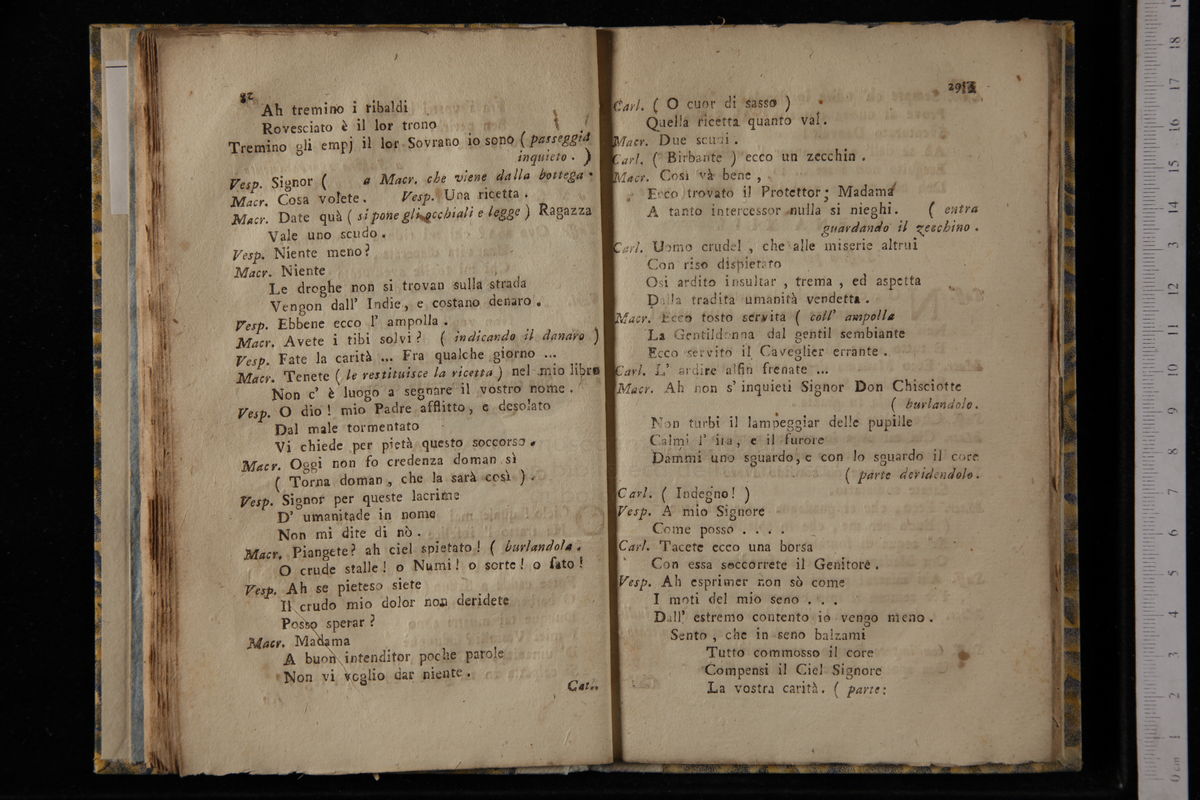 Ah tremino i ribaldi
Rovesciato è il lor trono
Tremino gli empj il lor Sovrano io sono ( passeggia
inquieto . )
Vesp. Signor ( a Macr. che viene dalla bottega .
Macr. Cosa volete . Vesp. Una ricetta .
Macr. Date quà ( si pone gli occhiali e legge ) Ragazza
Vale uno scudo .
Vesp. Niente meno ?
Macr. Niente
Le droghe non si trovan sulla strada
Vengon dall' Indie , e costano denaro .
Vesp. Ebbene ecco l' ampolla .
Macr. Avete i tibi solvi ? ( indicando il danaro )
Vesp. Fate la carità ... Fra qualche giorno ...
Macr. Tenete ( le restituisce la ricetta ) nel mio libro
Non c' è luogo a segnare il vostro nome .
Vesp. O dio ! mio Padre afflitto , e desolato
Dal male tormentato
Vi chiede per pietà questo soccorso .
Macr. Oggi non fo credenza doman sì
( Torna doman , che la sarà così ) .
Vesp. Signor per queste lacrime
D' umanitade in nome
Non mi dite di nò .
Macr. Piangete ? ah ciel spietato ! ( burlandola .
O crude stalle ! o Numi ! o sorte ! o fato !
Vesp. Ah se pietoso siete
Il crudo mio dolor non deridete
Posso sperar ?
Macr. Madama
A buon intenditor poche parole
Non vi voglio dar niente .
Car..
29
Carl. ( O cuor di sasso )
Quella ricetta quanto val .
Macr. Due scudi .
Carl. ( Birbante ) ecco un zecchin .
Macr. Così và bene ,
Ecco trovato il Protettor ; Madama
A tanto intercessor nulla si nieghi . ( entra
guardando il zecchino .
Carl. Uomo crudel , che alle miserie altrui
Con riso dispietato
Osi ardito insultar , trema , ed aspetta
Dalla tradita umanità vendetta .
Macr. Ecco tosto servita ( coll' ampolla
La Gentildonna dal gentil sembiante
Ecco servito il Caveglier errante .
Carl. L' ardire alfin frenate ...
Macr. Ah non s' inquieti Signor Don Chisciotte
( burlandolo .
Non turbi il lampeggiar delle pupille
Calmi l' ira , e il furore
Dammi uno sguardo , e con lo sguardo il core
( parte deridendolo .
Carl. ( Indegno ! )
Vesp. A mio Signore
Come posso . . . .
Carl. Tacete ecco una borsa
Con essa soccorrete il Genitore .
Vesp. Ah esprimer non sò come
I moti del mio seno . . .
Dall' estremo contento io vengo meno .
Sento , che in seno balzami
Tutto commosso il core
Compensi il Ciel Signore
La vostra carità . ( parte :